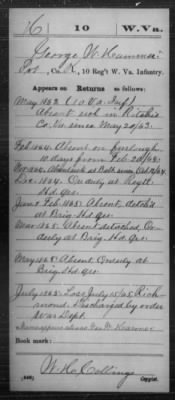 K | 10 | W. Va.
George W. Hammer
Pvt, Co. K, 10 Reg't W. Va. Infantry.
Appears on Returns as follows:
May 1863 (10 Va. Inft)
Absent sick in Ritchie
Co. Va. since May 20/63.
Feb 1864. Absent on furlough
10 days from Feb 28/64.
Dec. 1864. Orderly at Regtl
Hd. Qrs.
Jan & Feb 1865. Absent, detch'd
at Brig. Hd. Qrs.
Mar. 1865. Absent detached, Or-
derly at Brig. Hd. Qrs.
May 1865. Absent Orderly at
Brig. Hd. Qrs
July 1865. Loss July 15/65 Rich-
mond. Discharged by order
War Dept.
Book mark:
W. H. Collings
(546) Copyist.